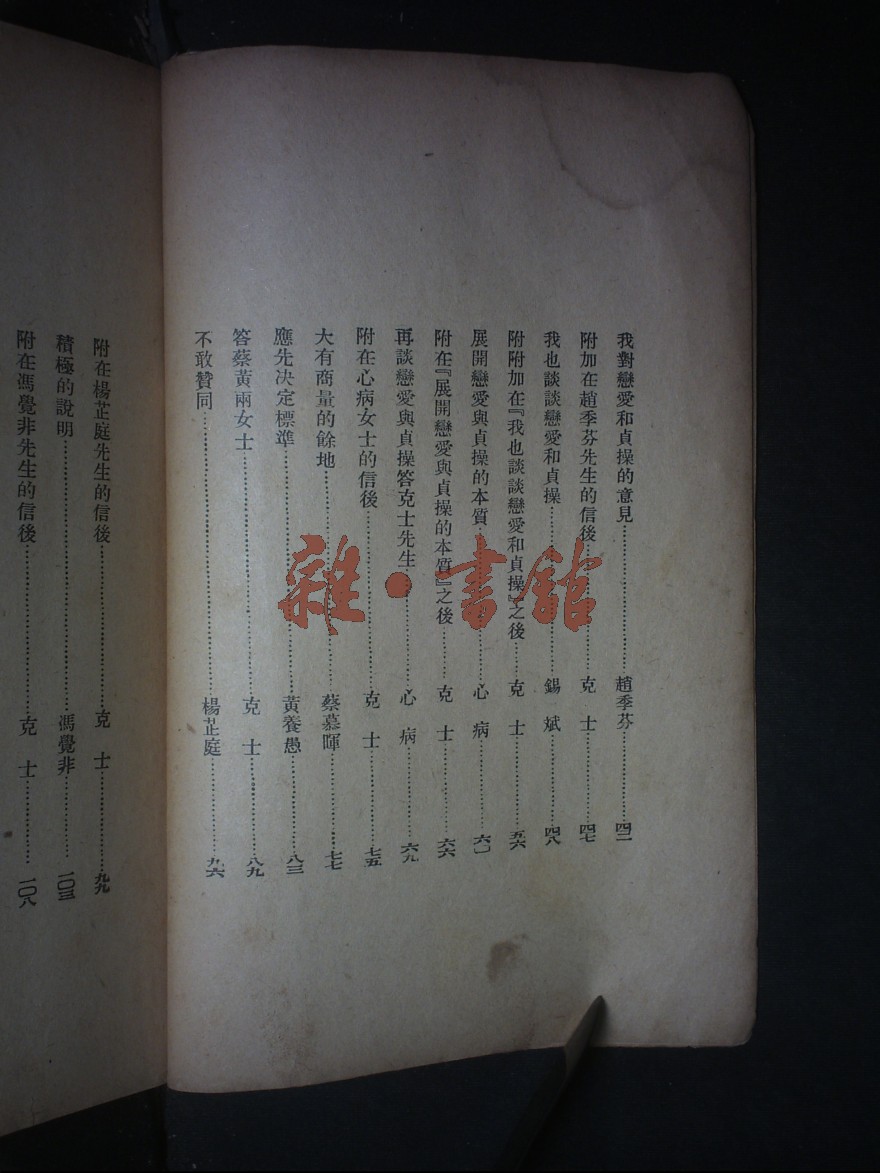 我對戀愛和貞操的意見……趙季芬……四二
附加在趙季芬先生的信後……克士……四七
我也談談戀愛和貞操……錫斌……四八
附附加在『我也談談戀愛和貞操』之後……克士……五六
展開戀愛與貞操的本質……心病……六〇
附在『展開戀愛與貞操的本質』之後……克士……六六
再談戀愛與貞操答克士先生……心病……六九
附在心病女士的信後……克士……七五
大有商量的餘地……蔡慕暉……七七
應先決定標準……黃養愚……八三
答蔡黃兩女士……克士……八九
不敢贊同……楊芷庭……九六
附在楊芷庭先生的信後……克士……九九
積極的說明……馮覺非……一〇三
附在馮覺非先生的信後……克士……一〇八
雜·書館